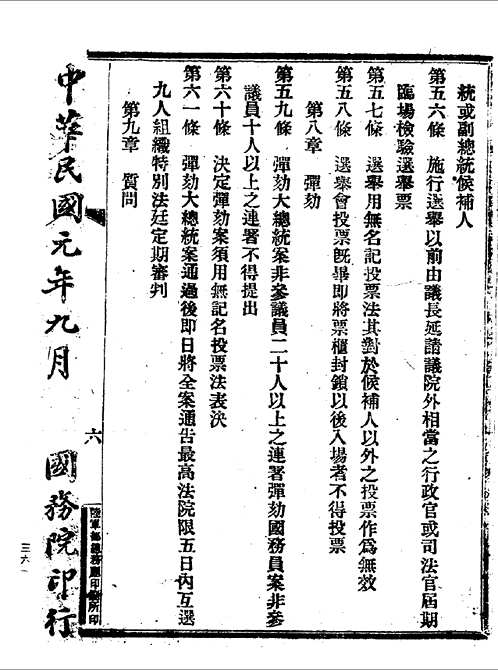 統或副總統候補人
第五六條　施行選舉以前由議長延請議院外相當之行政官或司法官屆期
臨場檢驗選舉票
第五七條　選舉用無名記投票法其對於候補人以外之投票作爲無效
第五八條　選舉會投票旣畢即將票櫃封鎖以後入場者不得投票
第八章　彈劾
第五九條　彈劾大總統案非參議員二十人以上之連署彈劾國務員案非參
議員十人以上之連署不得提出
第六十條　決定彈劾案須用無記名投票法表決
第六一條　彈劾大總統案通過後即日將全案通告最高法院限五日內互選
九人組織特別法廷定期審判
第九章　質問
六
陸軍部總務廳印刷所印
中華民國元年九月　國務院印行
三六一